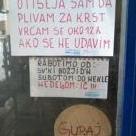 OTIŠLA SAM DA
PLIVAM ZA KRST
VRĆAM SE OKO 12h
AKO SE NE UDAVIM
RABOTIMO OD:
SUBOTOM DO
NEDELJOM
GURAJ